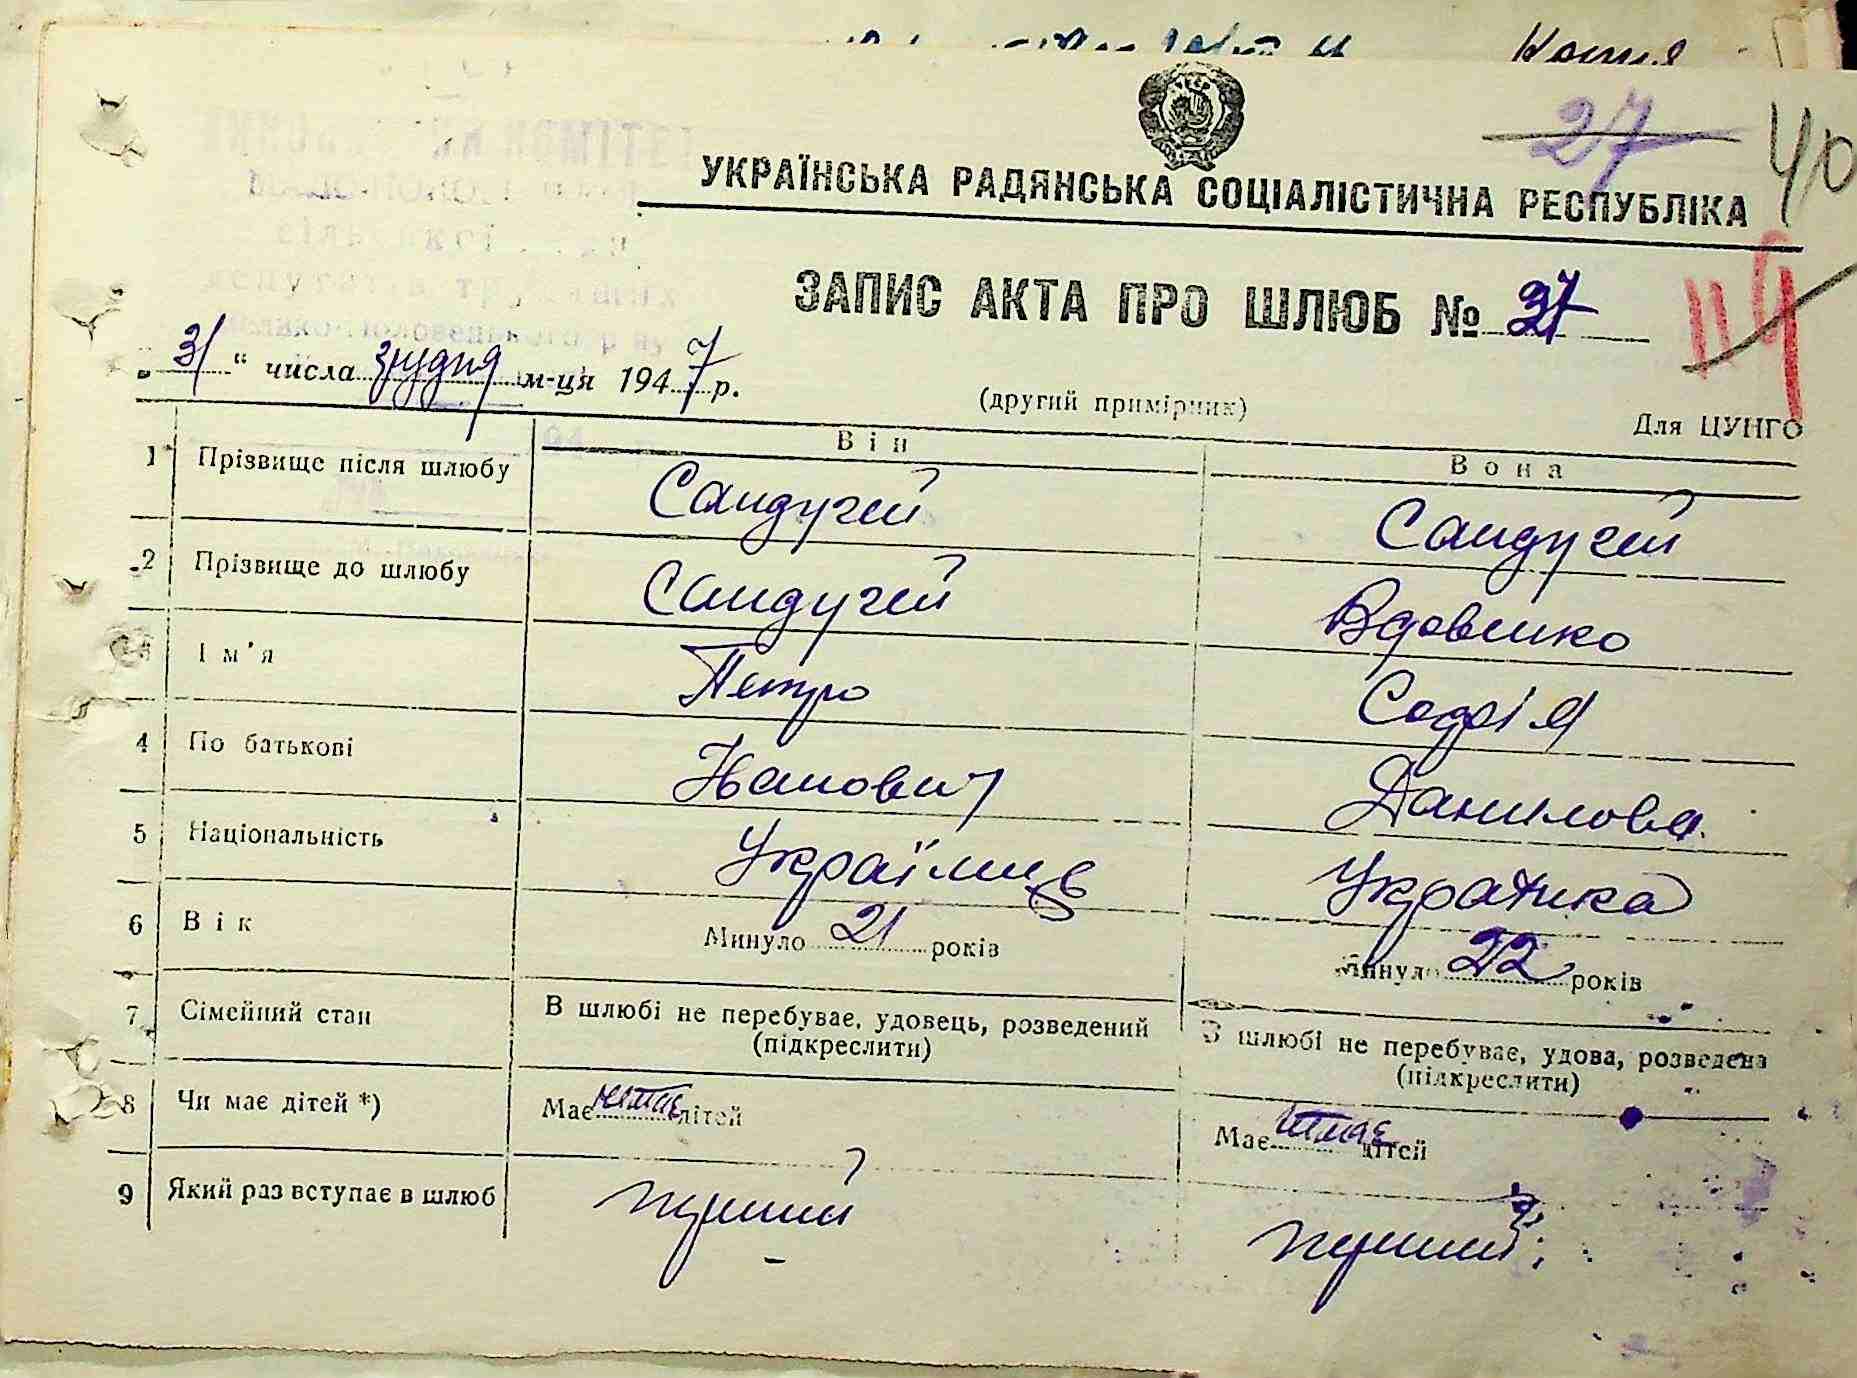 Копия
27 40
УКРАЇНСЬКА РАДЯНСЬКА СОЦІАЛІСТИЧНА РЕСПУБЛІКА
ЗАПИС АКТА ПРО ШЛЮБ № 37
114
31 “ числа грудня м-ця 1947 р.
(другий примірник)
Для ЦУНГО
Він Вона
1 Прізвище після шлюбу Сандугей Сандугей
2 Прізвище до шлюбу Сандугей Вдовенко
Ім'я Петро Софія
4 По батькові Іванович Данилова
5 Національність Українець Українка
6 Вік Минуло 21 років Минуло 22 років
7 Сімейний стан В шлюбі не перебуває, удовець, розведений (підкреслити) В шлюбі не перебуває, удова, розведена (підкреслити)
8 Чи має дітей *) Має немає дітей Має немає дітей
9 Який раз вступає в шлюб перший перший